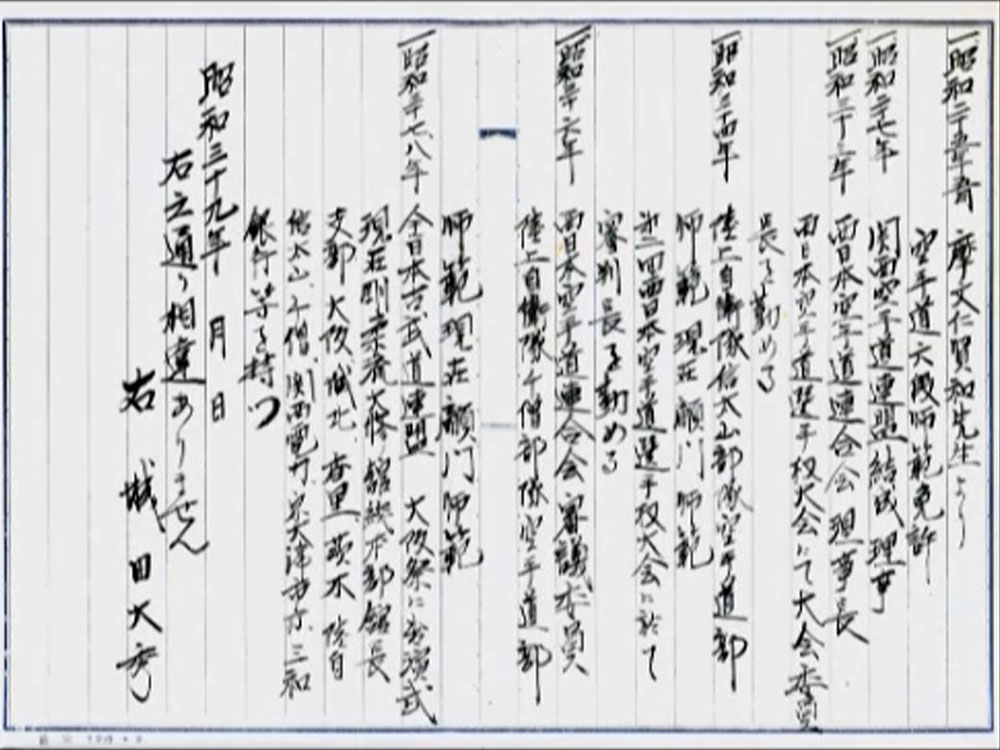 一昭和二十五年 摩文仁賢和先生より
空手道六段師範免許
一昭和二十七年 関西空手道連盟結成理事
一昭和三十三年 西日本空手道連合会理事長
西日本空手道選手権大会にて大会委員
長を勤める
一昭和三十四年 陸上自衛隊信太山部隊空手道部
師範現在顧門師範
第二回西日本空手道選手权大会に於て
審判長を勤める
一昭和三十六年 西日本空手道連合会審議委員
陸上自衛隊千僧部隊空手道部
師範現在顧門師範
一昭和三十七、八年 全日本古武道連盟 大阪祭に於演武
現在剛柔流大修館総本部館長
支部 大阪、城北、香里、茨木 陸自
信太山、千僧、関西電力、泉大津市京、三和
銀行等を持つ
昭和三十九年 月 日
右之通り相違ありません
右 城田大秀